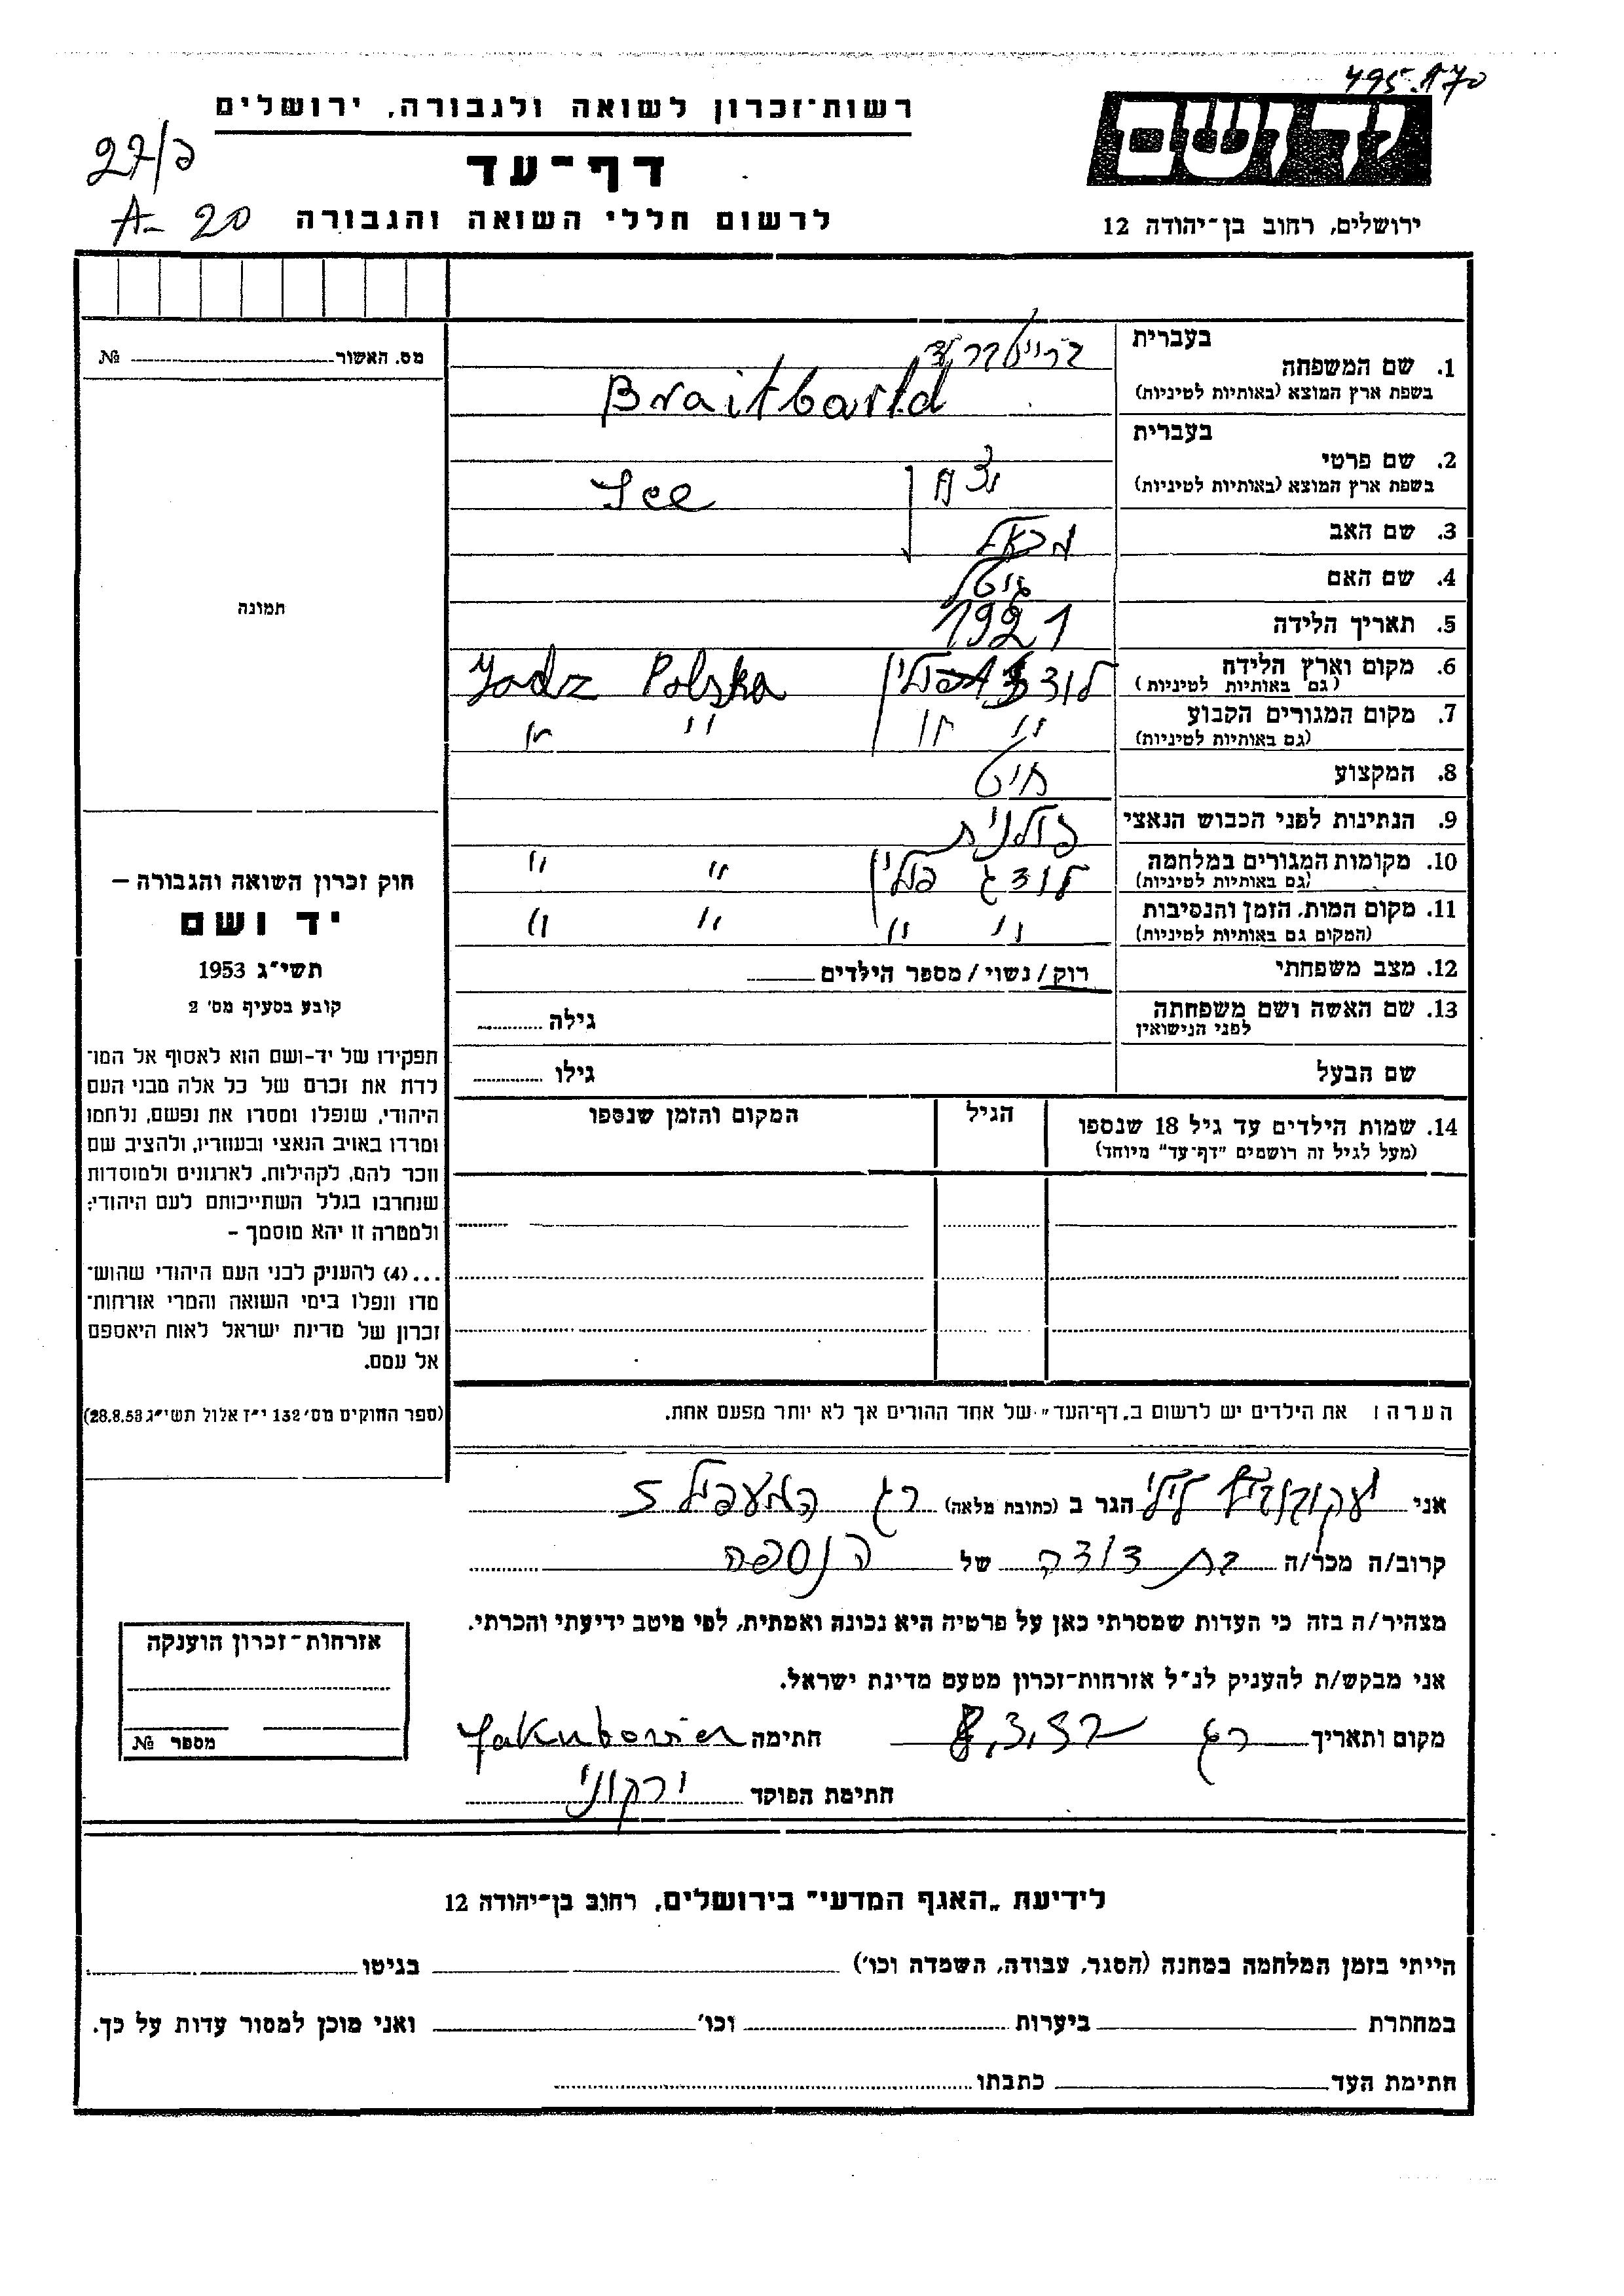 495.170
רשות-זכרון לשואה ולגבורה, ירושלים
27/ס
דף-עד
A- 20
לרשום חללי השואה והגבורה
ידושם
ירושלים, רחוב בן-יהודה 12
מס. האשור № 
תמונה
חוק זכרון השואה והגבורה –
יד ושם
תשי"ג 1953
קובע בסעיף מס' 2
תפקידו של יד-ושם הוא לאסוף אל המו-
לדת את זכרם של כל אלה מבני העם
היהודי, שנפלו ומסרו את נפשם, נלחמו
ומרדו באויב הנאצי ובעוזריו, ולהציב שם
וזכר להם, לקהילות, לארגונים ולמוסדות
שנחרבו בגלל השתייכותם לעם היהודי;
ולמטרה זו יהא מוסמך –
...(4) להעניק לבני העם היהודי שהוש-
מדו ונפלו בימי השואה והמרי אזרחות-
זכרון של מדינת ישראל לאות היאספם
אל עמם.
(ספר החוקים מס' 132 י"ז אלול תשי"ג 28.8.53)
בעברית
1. שם המשפחה
(בשפת ארץ המוצא (באותיות לטיניות
Braitbarld
בעברית
2. שם פרטי
(בשפת ארץ המוצא (באותיות לטיניות
3. שם האב מכאל
4. שם האם גיטל
5. תאריך הלידה 1921
6. מקום וארץ הלידה לודז פולין Polska
(גם באותיות לטיניות)
7. מקום המגורים הקבוע " " " "
(גם באותיות לטיניות)
8. המקצוע חיט
9. הנתינות לפני הכבוש הנאצי פולנית
10. מקומות המגורים במלחמה לודג פולין " "
(גם באותיות לטיניות)
11. מקום המות, הזמן והנסיבות " " " "
(המקום גם באותיות לטיניות)
12. מצב משפחתי רוק / נשוי / מספר הילדים
13. שם האשה ושם משפחתה גילה
לפני הנישואין
שם הבעל גילו
14. שמות הילדים עד גיל 18 שנספו הגיל המקום והזמן שנספו
(מעל לגיל זה רושמים "דף-עד" מיוחד)
הערה: את הילדים יש לרשום ב"דף-העד" של אחד ההורים אך לא יותר מפעם אחת.
אני הגר ב (כתובת מלאה) רג המעפיל 5
קרוב/ה מכר/ה בת דודה של הנספה
מצהיר/ה בזה כי העדות שמסרתי כאן על פרטיה היא נכונה ואמתית, לפי מיטב ידיעתי והכרתי.
אני מבקש/ת להעניק לנ"ל אזרחות-זכרון מטעם מדינת ישראל.
מקום ותאריך רג חתימה
חתימת הפוקד ירקוני
אזרחות-זכרון הוענקה
מספר №
לידיעת "האגף המדעי" בירושלים, רחוב בן-יהודה 12
הייתי בזמן המלחמה במחנה (הסגר, עבודה, השמדה וכו') בגיטו
במחתרת ביערות וכו' ואני מוכן למסור עדות על כך.
חתימת העד כתבתו